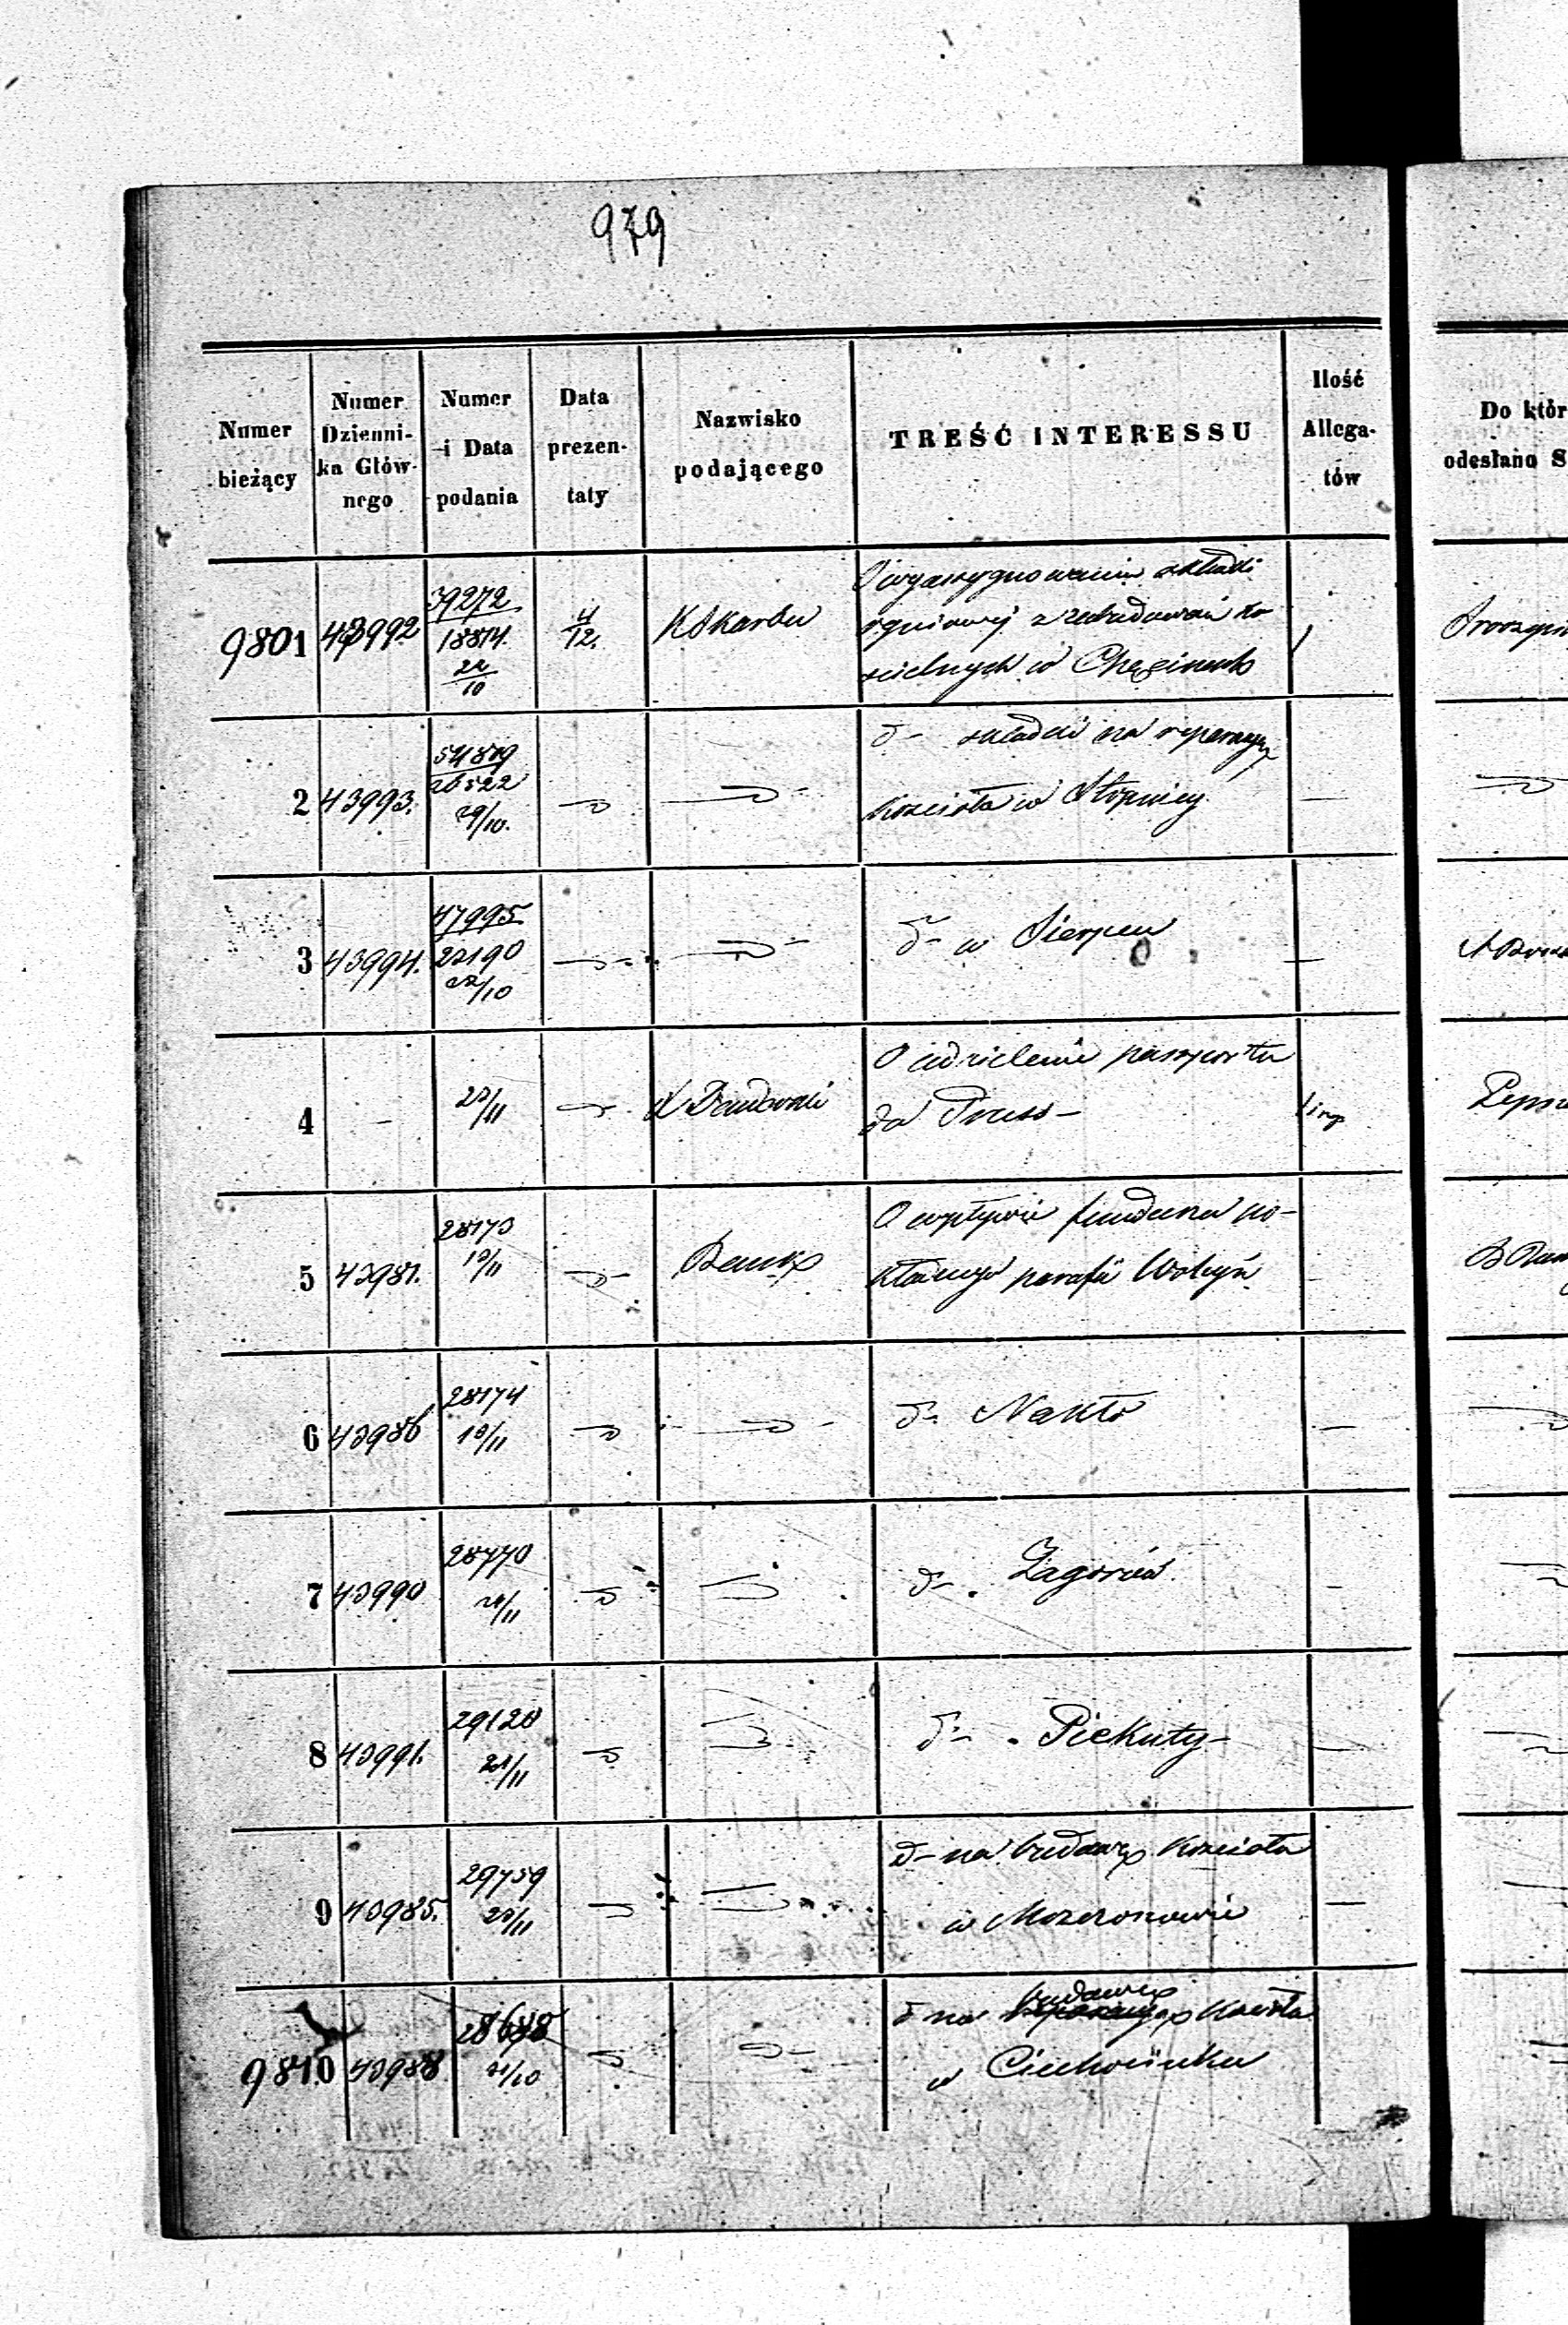 979
Numer bieżący
Numer Dzienni- ka Głów- nego
Numer i Data podania
Data prezen- taty
Nazwisko podającego
TREŚĆ INTERESSU
Ilość Allega- tów
Do któr
odesłano S
9801 43992 39272 18814 22/10 4/12. K Skarbu
O wyassygnowanie składki
ogniowej z zabudowań ko
scielnych w Chęcinach
2 43993. 54809 26522 29/10.
d- składki na reperacyą
kościoła w Stopnicy
3 43994. 47995 22190 22/10 d- w Sierpcu
4 - 23/11
O udzielenie paszportu
do Pruss-
5 43987. 28173 19/11 Banku
O wpływie funduszu po-
kładnego parafii Wohyń
6 43986 28174 19/11 d- Nakło
7 43990 28770 21/11 d- Zagorów
8 43991. 29120 21/11 d- Piekuty-
9 43985. 29759 23/11 d- na budowę kościoła
w
9810 43988 28688 21/10 d na budowę kościoła
w Ciechocinku